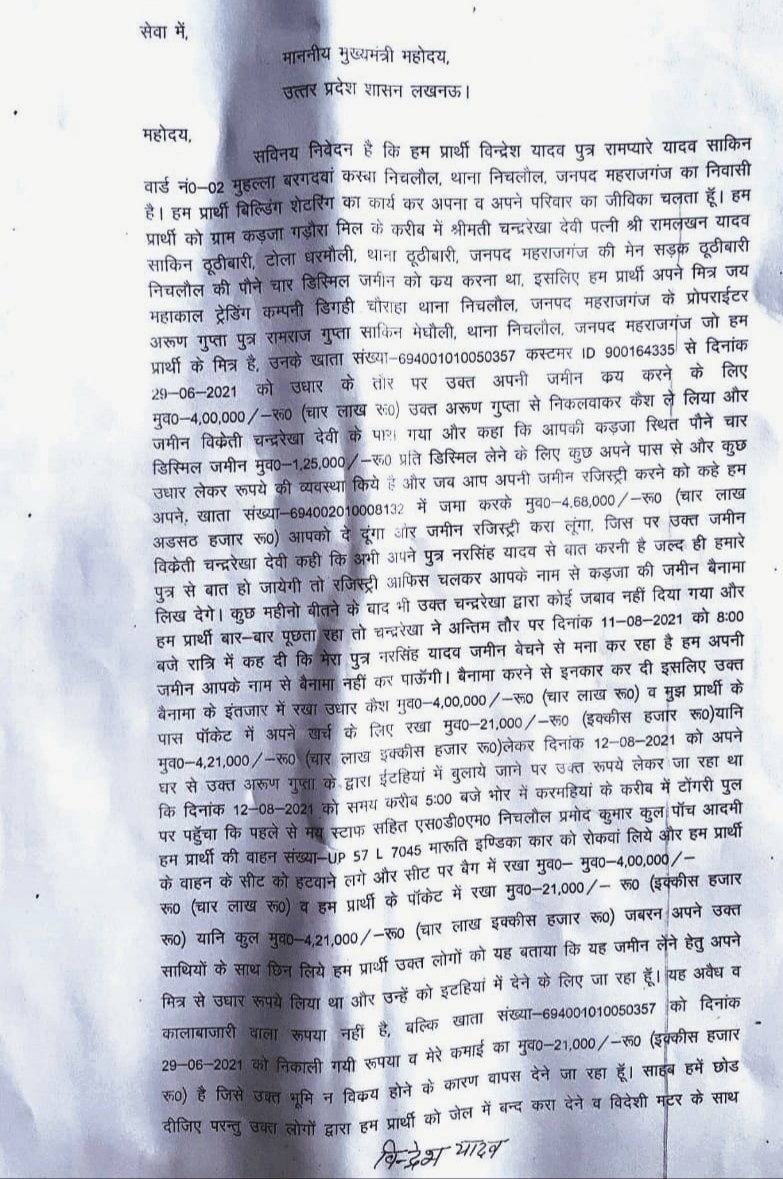 सेवा में,
माननीय मुख्यमंत्री महोदय,
उत्तर प्रदेश शासन लखनऊ।
महोदय,
सविनय निवेदन है कि हम प्रार्थी विन्द्रेश यादव पुत्र रामप्यारे यादव साकिन
वार्ड नं0-02 मुहल्ला बरगदवां कस्बा निचलौल, थाना निचलौल, जनपद महराजगंज का निवासी
है। हम प्रार्थी बिल्डिंग शेटरिंग का कार्य कर अपना व अपने परिवार का जीविका चलता हूँ। हम
प्रार्थी को ग्राम कड़जा गड़ौरा मिल के करीब में श्रीमती चन्द्ररेखा देवी पत्नी श्री रामलखन यादव
साकिन ठूठीबारी, टोला धरमौली, थाना ठूठीबारी, जनपद महराजगंज की मेन सड़क ठूठीबारी
निचलौल की पौने चार डिस्मिल जमीन को कय करना था, इसलिए हम प्रार्थी अपने मित्र जय
महाकाल ट्रेडिंग कम्पनी डिगही चौराहा थाना निचलौल, जनपद महराजगंज के प्रोपराईटर
अरूण गुप्ता पुत्र रामराज गुप्ता साकिन मेघौली, थाना निचलौल, जनपद महराजगंज जो हम
प्रार्थी के मित्र है, उनके खाता संख्या-694001010050357 कस्टमर ID 900164335 से दिनांक
29-06-2021 को उधार के तौर पर उक्त अपनी जमीन कय करने के लिए
मुव0-4,00,000/-रू0 (चार लाख रू0) उक्त अरूण गुप्ता से निकलवाकर कैश ले लिया और
जमीन विकेती चन्द्ररेखा देवी के पास गया और कहा कि आपकी कड़जा स्थित पौने चार
डिस्मिल जमीन मुव0-1,25,000/-रू0 प्रति डिस्मिल लेने के लिए कुछ अपने पास से और कुछ
उधार लेकर रूपये की व्यवस्था किये है और जब आप अपनी जमीन रजिस्ट्री करने को कहे हम
अपने, खाता संख्या-694002010008132 में जमा करके मुव0-4,68,000/-रू0 (चार लाख
अडसठ हजार रू0) आपको दे दूंगा और जमीन रजिस्ट्री करा लूंगा, जिस पर उक्त जमीन
विकेती चन्द्ररेखा देवी कही कि अभी अपने पुत्र नरसिंह यादव से बात करनी है जल्द ही हमारे
पुत्र से बात हो जायेगी तो रजिस्ट्री आफिस चलकर आपके नाम से कड़जा की जमीन बैनामा
लिख देगे। कुछ महीनो बीतने के बाद भी उक्त चन्द्ररेखा द्वारा कोई जबाव नहीं दिया गया और
हम प्रार्थी बार-बार पूछता रहा तो चन्द्ररेखा ने अन्तिम तौर पर दिनांक 11-08-2021 को 8:00
बजे रात्रि में कह दी कि मेरा पुत्र नरसिंह यादव जमीन बेचने से मना कर रहा है हम अपनी
जमीन आपके नाम से बैनामा नहीं कर पाऊँगी। बैनामा करने से इनकार कर दी इसलिए उक्त
बैनामा के इंतजार में रखा उधार कैश मुव0-4,00,000/-रू0 (चार लाख रू0) व मुझ प्रार्थी के
पास पॉकेट में अपने खर्च के लिए रखा मुव0-21,000/-रू0 (इक्कीस हजार रू0)यानि
मुव0-4,21,000/-रू0 (चार लाख इक्कीस हजार रू0)लेकर दिनांक 12-08-2021 को अपने
घर से उक्त अरूण गुप्ता के द्वारा ईटहियां में बुलाये जाने पर उक्त रूपये लेकर जा रहा था
कि दिनांक 12-08-2021 को समय करीब 5:00 बजे भोर में करमहियां के करीब में टोंगरी पुल
पर पहुँचा कि पहले से मय स्टाफ सहित एस0डी0एम0 निचलौल प्रमोद कुमार कुल पॉच आदमी
हम प्रार्थी की वाहन संख्या-UP 57 L 7045 मारूति इण्डिका कार को रोकवां लिये और हम प्रार्थी
के वाहन के सीट को हटवाने लगे और सीट पर बैग में रखा मुव0- मुव0-4,00,000/-
रू0 (चार लाख रू0) व हम प्रार्थी के पॉकेट में रखा मुव0-21,000/- रू0 (इक्कीस हजार
रू0) यानि कुल मुव0-4,21,000/-रू0 (चार लाख इक्कीस हजार रू0) जबरन अपने उक्त
साथियों के साथ छिन लिये हम प्रार्थी उक्त लोगों को यह बताया कि यह जमीन लेने हेतु अपने
मित्र से उधार रूपये लिया था और उन्हें को इटहियां में देने के लिए जा रहा हूँ। यह अवैध व
कालाबाजारी वाला रूपया नहीं है, बल्कि खाता संख्या-694001010050357 को दिनांक
29-06-2021 को निकाली गयी रूपया व मेरे कमाई का मुव0-21,000/-रू0 (इक्कीस हजार
रू0) है जिसे उक्त भूमि न विकय होने के कारण वापस देने जा रहा हूँ। साहब हमें छोड
दीजिए परन्तु उक्त लोगों द्वारा हम प्रार्थी को जेल में बन्द करा देने व विदेशी मटर के साथ
विन्द्रेश यादव